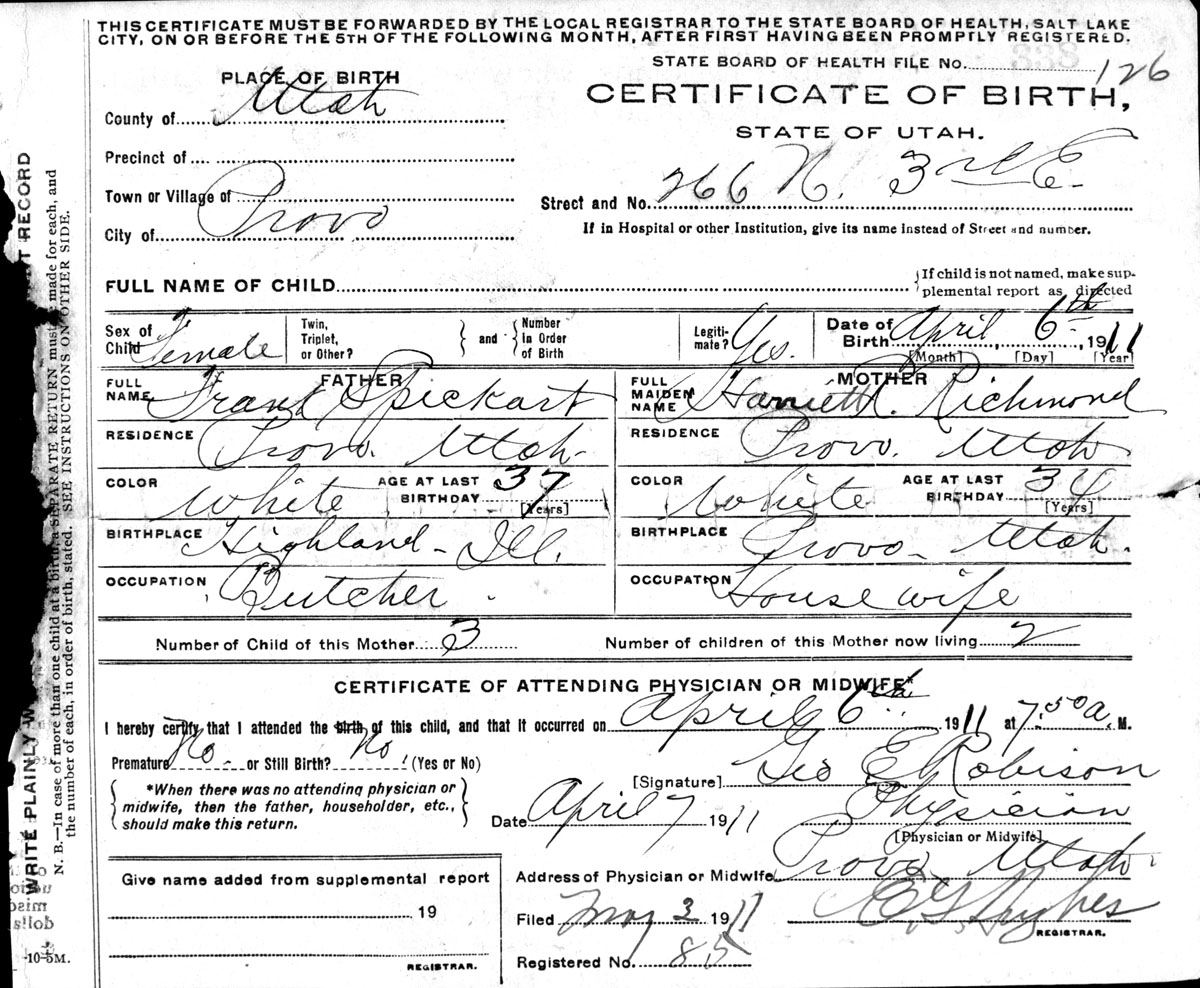 THIS CERTIFICATE MUST BE FORWARDED BY THE LOCAL REGISTRAR TO THE STATE BOARD OF HEALTH, SALT LAKE
CITY, ON OR BEFORE THE 5TH OF THE FOLLOWING MONTH, AFTER FIRST HAVING BEEN PROMPTLY REGISTERED.
338
STATE BOARD OF HEALTH FILE No. 126
PLACE OF BIRTH
CERTIFICATE OF BIRTH,
County of Utah
STATE OF UTAH.
Precinct of
Town or Village of
Street and No. 266 N. 3rd E.
City of Provo
If in Hospital or other Institution, give its name instead of Street and number.
FULL NAME OF CHILD
If child is not named, make sup-
plemental report as directed
Sex of Child Female
Twin, Triplet, or Other?
and
Number In Order of Birth
Legiti-mate? Yes.
Date of Birth April 6th, 1911
[Month] [Day] [Year]
FATHER
MOTHER
FULL NAME Frank Spickart
FULL MAIDEN NAME Harriett Richmond
RESIDENCE Provo. Utah.
RESIDENCE Provo. Utah
COLOR White AGE AT LAST BIRTHDAY 37 [Years]
COLOR White AGE AT LAST BIRTHDAY 34 [Years]
BIRTHPLACE Highland - Ill.
BIRTHPLACE Provo - Utah.
OCCUPATION Butcher.
OCCUPATION Housewife
Number of Child of this Mother 3
Number of children of this Mother now living 2
CERTIFICATE OF ATTENDING PHYSICIAN OR MIDWIFE*
I hereby certify that I attended the birth of this child, and that it occurred on April 6th 1911 at 7:50 a. M.
Premature No. or Still Birth? No. (Yes or No)
[Signature] Geo E Robison
*When there was no attending physician or
midwife, then the father, householder, etc.,
should make this return.
Date April 7 1911
Physician
[Physician or Midwife]
Give name added from supplemental report
Address of Physician or Midwife Provo Utah
19
Filed May 3 1911 Hughes
REGISTRAR.
REGISTRAR.
Registered No. 85
WRITE PLAINLY
RECORD
N. B.—In case of more than one child at a birth, a SEPARATE RETURN must be made for each, and
the number of each, in order of birth, stated. SEE INSTRUCTIONS ON OTHER SIDE.
10-5M.